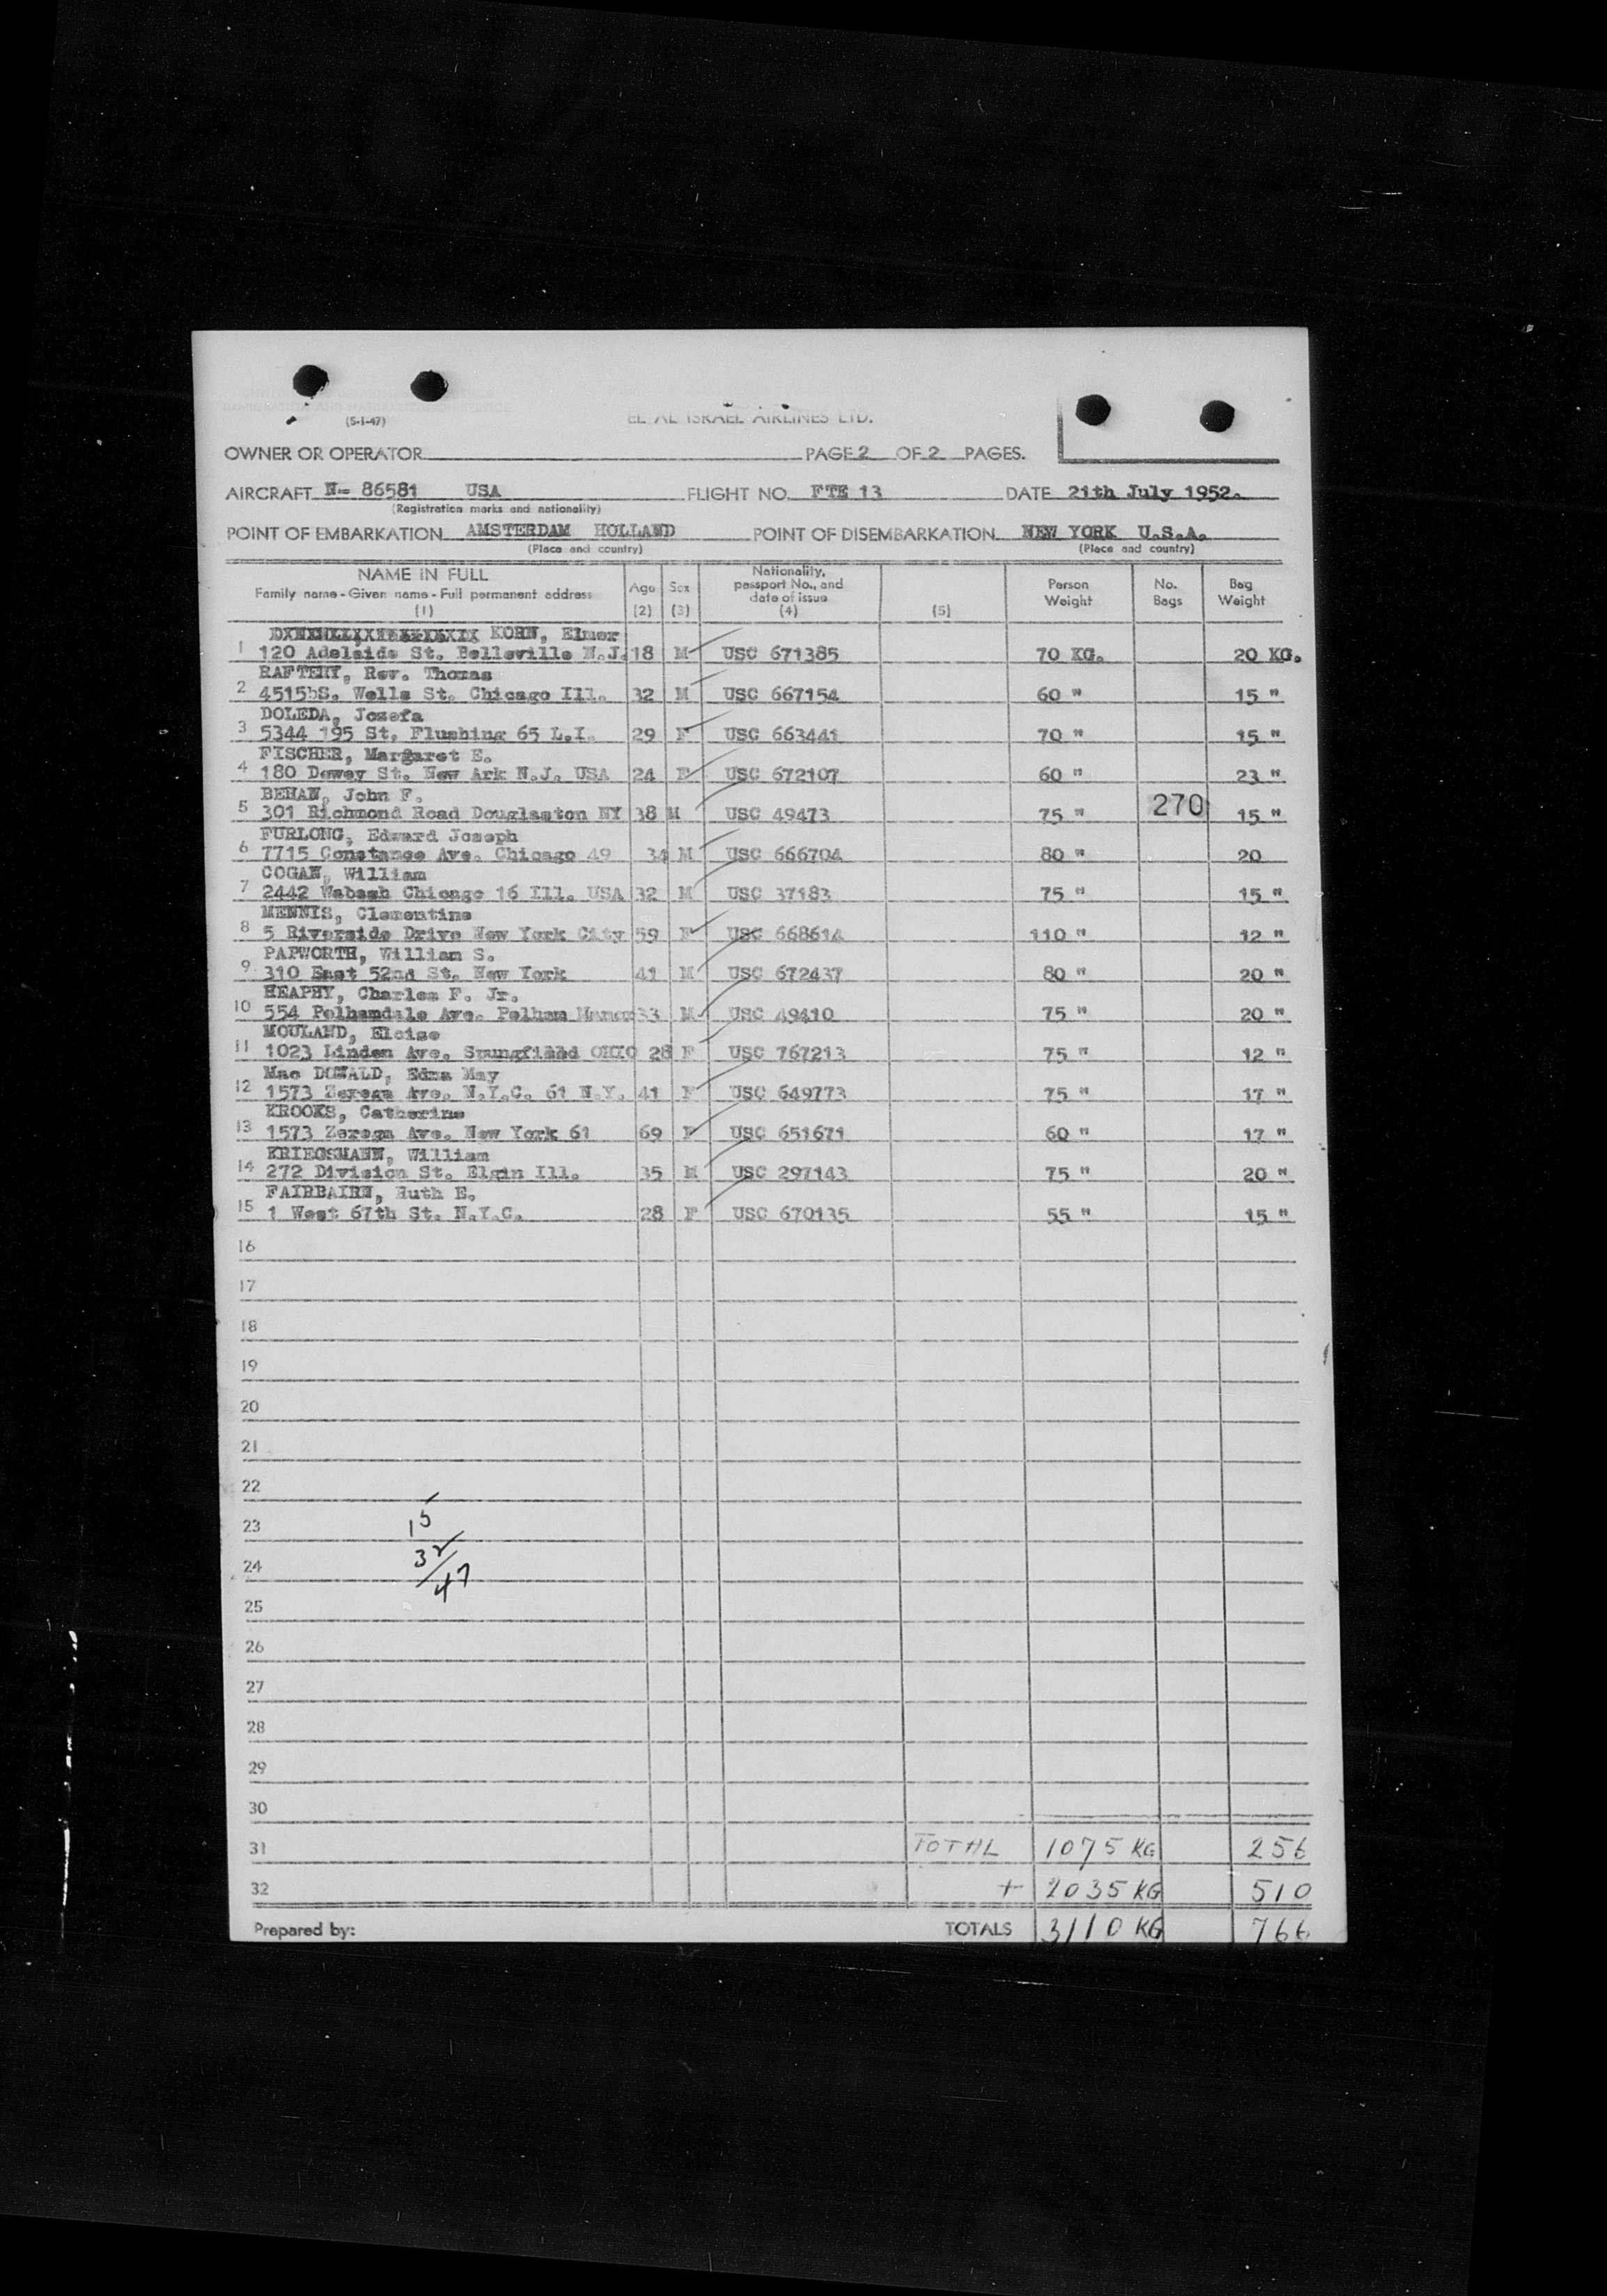 (5-1-47) EL AL ISRAEL AIRLINES LTD.
OWNER OR OPERATOR PAGE 2 OF 2 PAGES.
AIRCRAFT N- 86581 USA FLIGHT NO. FTE 13 DATE 21th July 1952.
(Registration marks and nationality)
POINT OF EMBARKATION AMSTERDAM HOLLAND POINT OF DISEMBARKATION NEW YORK U.S.A.
(Place and country) (Place and country)
NAME IN FULL Age Sex Nationality, Person No. Bag
Family name - Given name - Full permanent address passport No., and Weight Bags Weight
date of issue
(1) (2) (3) (4) (5)
KORN, Elmer
1 120 Adelaide St. Belleville N.J. 18 M USC 671385 70 KG. 20 KG.
RAFTERY, Rev. Thomas
2 4515 S. Wells St. Chicago Ill. 32 M USC 667154 60 " 15 "
DOLEDA, Jozefa
3 5344 195 St, Flushing 65 L.I. 29 F USC 663441 70 " 15 "
FISCHER, Margaret E.
4 180 Dewey St. New Ark N.J. USA 24 F USC 672107 60 " 23 "
BEHAN, John F.
5 301 Richmond Road Douglaston NY 38 M USC 49473 75 " 270 15 "
FURLONG, Edward Joseph
6 7715 Constance Ave. Chicago 49 34 M USC 666704 80 " 20
COGAN, William
7 2442 Wabash Chicago 16 Ill. USA 32 M USC 37183 75 " 15 "
MENNIS, Clementine
8 5 Riverside Drive New York City 59 F USC 668614 110 " 12 "
PAPWORTH, William S.
9 310 East 52nd St. New York 41 M USC 672437 80 " 20 "
HEAPHY, Charles F. Jr.
10 554 Pelhamdale Ave. Pelham Manor 33 M USC 49410 75 " 20 "
MOULAND, Eloise
11 1023 Linden Ave. OHIO 28 F USC 767213 75 " 12 "
Mac DONALD, Edna May
12 1573 Zerega Ave. N.Y.C. 61 N.Y. 41 F USC 649773 75 " 17 "
KROOKS, Catherine
13 1573 Zerega Ave. New York 61 69 F USC 651671 60 " 17 "
KRIEGSMANN, William
14 272 Division St. Elgin Ill. 35 M USC 297143 75 " 20 "
FAIRBAIRN, Ruth E.
15 1 West 67th St. N.Y.C. 28 F USC 670135 55 " 15 "
16
17
18
19
20
21
22
23 15
24 32
47
25
26
27
28
29
30
31 TOTAL 1075 KG 256
32 + 2035 KG 510
Prepared by: TOTALS 3110 KG 766